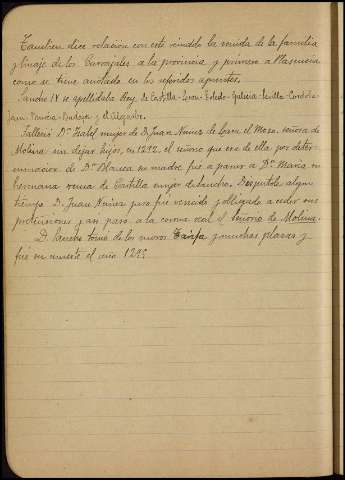 Tambien dice relacion con este reinado la venida de la familia
y linaje de los Carvajales a la provincia y primero a Plasencia
como se tiene anotado en los referidos apuntes.
Sancho IV se apellidaba Rey de Castilla-Leon-Toledo-Galicia-Sevilla-Cordoba-
Jaen-Murcia-Badajoz y el Algarbe.
Falleció Dª Isabel mujer de D. Juan Nuñez de Lara el Mozo, señora de
Molina sin dejar hijos, en 1292. el señorio que era de ella por deter-
minacion de Dª Blanca su madre fué a parar a Dª Maria su
hermana reina de Castilla mujer de Sancho. Disputóle algun
tiempo D. Juan Nuñez pero fué vencido y obligado a ceder sus
pretensiones y asi paso a la corona real el señorio de Molina.
D. Sancho tomó de los moros Tarifa y muchas plazas y
fué su muerte el año